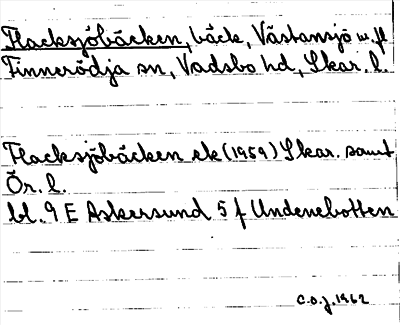 Flacksjöbäcken, bäck, Västansjö w. fl
Finnerödja sn, Vadsbo hd, Skar. l.
Flacksjöbäcken ek (1959) Skar. samt
Ör. l.
bl. 9 E Askersund 5 f Undenebotten
C.O.J. 1962